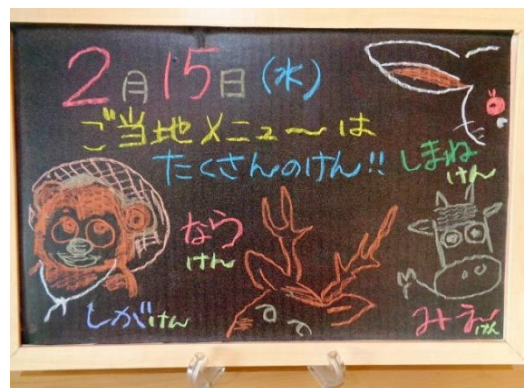 2月15日(水)
ご当地メニューは
たくさんのけん!!
しまね
けん
なら
けん
しがけん
みえけん